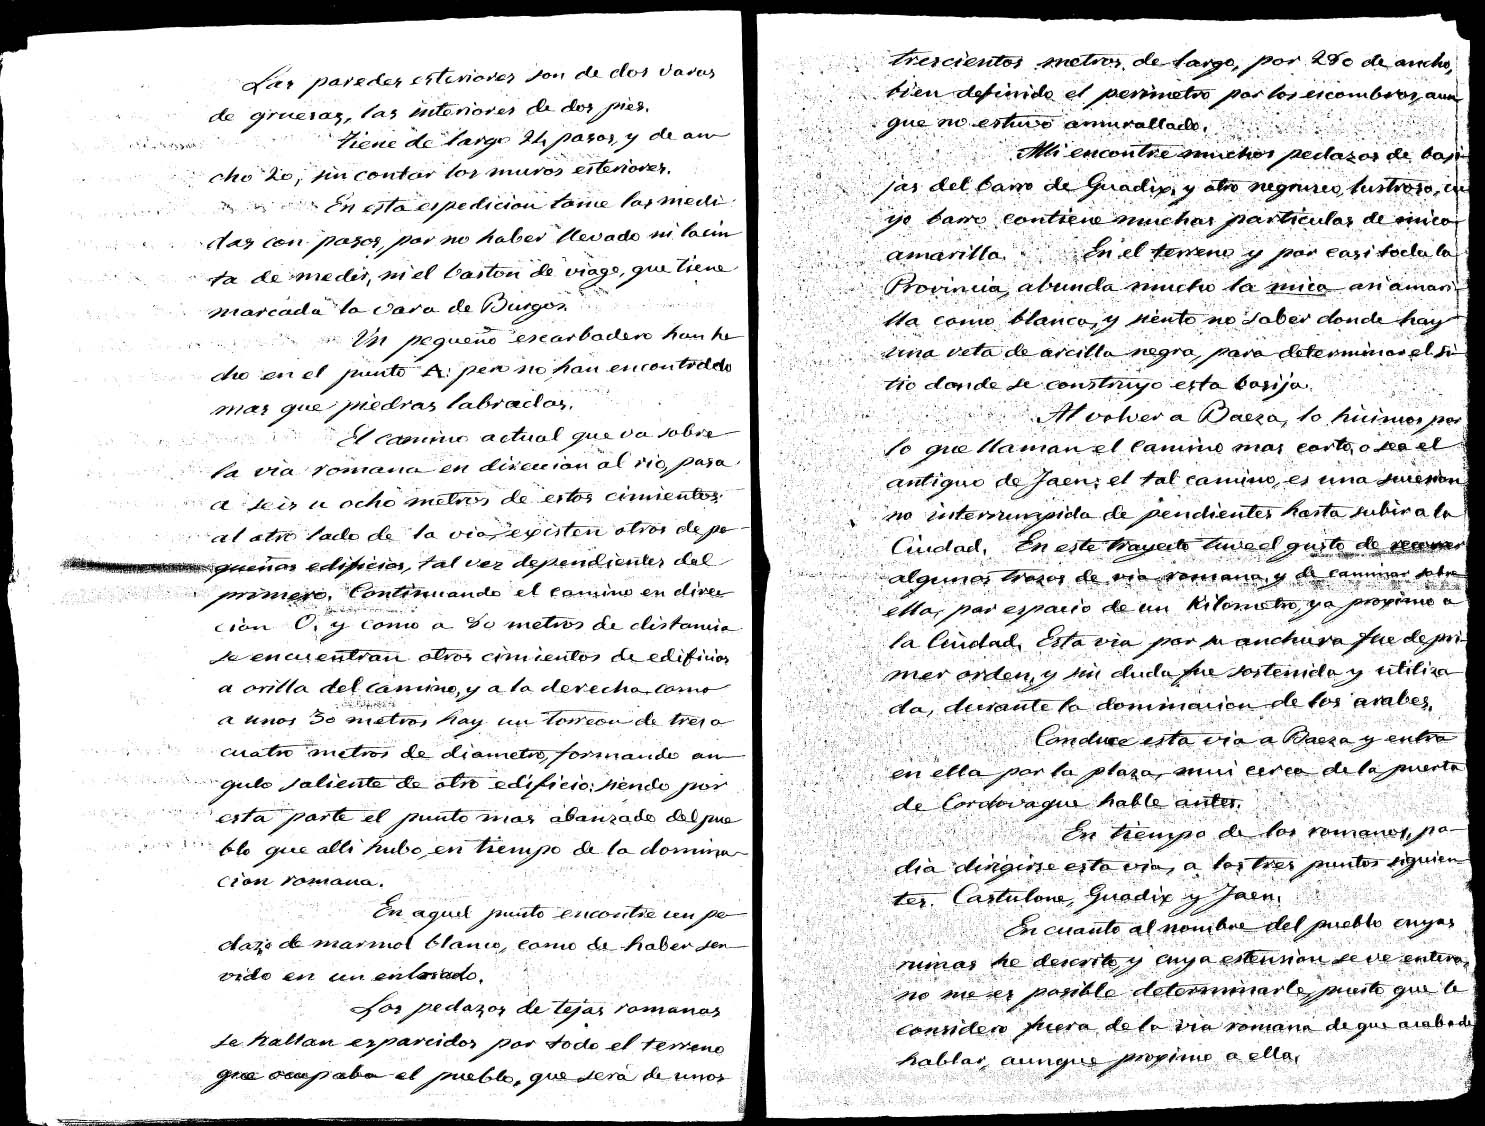 Las paredes esteriores son de dos varas
de gruesas, las interiores de dos pies.
Tiene de largo 24 pasos y de an-
cho 20, sin contar los muros esteriores.
En esta espedicion tome las medi-
das con pasos, por no haber llevado ni la cin
ta de medir, ni el baston de viage, que tiene
marcada la vara de Burgos.
Un pequeño escarbadero han he
cho en el punto A. pero no han encontrado
mas que piedras labradas.
El camino actual que va sobre
la via romana en direccion al rio, pasa
a seis u ocho metros de estos cimientos:
al otro lado de la via, existen otros de pe-
queños edificios, tal vez dependientes del
primero. Continuando el camino en direc
cion O. y como a 80 metros de distancia
se encuentran otros cimientos de edificios
a orilla del camino, y a la derecha como
a unos 30 metros hay un torreon de tres a
cuatro metros de diametro, formando an
gulo saliente de otro edificio: siendo por
esta parte el punto mas abanzado del pue
blo que alli hubo en tiempo de la domina-
cion romana.
En aquel punto encontre un pe-
dazo de marmol blanco, como de haber ser-
vido en un enlosado.
Los pedazos de tejas romanas
se hallan esparcidos por todo el terreno
que ocupaba el pueblo, que será de unos
trescientos metros de largo, por 280 de ancho,
bien definido el perimetro por los escombros, aun
que no estuvo amurallado.
Alli encontre muchos pedazos de basi-
jas del barro de Guadix, y otro negrusco, lustroso, cu
yo barro contiene muchas particulas de mica
amarilla. En el terreno y por casi toda la
Provincia, abunda mucho la mica asi amari-
lla como blanca, y siento no saber donde hay
una veta de arcilla negra, para determinar el si
tio donde se construyo esta basija.
Al volver a Baeza, lo hicimos por
lo que llaman el camino mas corto, o sea el
antiguo de Jaen; el tal camino, es una sucesion
no interrumpida de pendientes hasta subir a la
Ciudad. En este trayecto tuve el gusto de recorrer
algunos trozos de via romana, y de caminar sobre
ella, por espacio de un Kilometro, ya proximo a
la Ciudad. Esta via por su anchura fue de pri-
mer orden, y sin duda fue sostenida y utiliza
da, durante la dominacion de los arabes.
Conduce esta via a Baeza y entra
en ella por la plaza, mui cerca de la puerta
de Cordova que hable antes.
En tiempo de los romanos, po-
dia dirigirse esta via, a los tres puntos siguien-
tes. Castulone, Guadix y Jaen.
En cuanto al nombre del pueblo cuyas
ruinas he descrito, y cuya estension se ve entera,
no me es posible determinarle, puesto que le
considero fuera de la via romana de que acabo de
hablar, aunque proximo a ella.